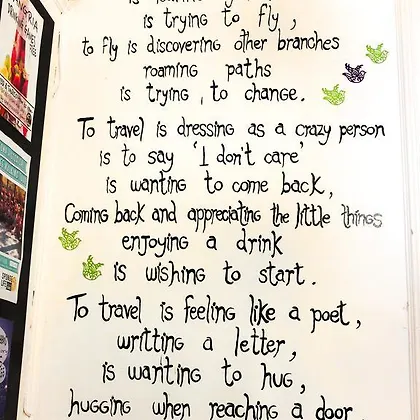 is trying to fly,
to fly is discovering other branches
roaming paths
is trying to change.
To travel is dressing as a crazy person
is to say 'I don't care'
is wanting to come back,
Coming back and appreciating the little things
enjoying a drink
is wishing to start.
To travel is feeling like a poet,
writting a letter,
is wanting to hug,
hugging when reaching a door